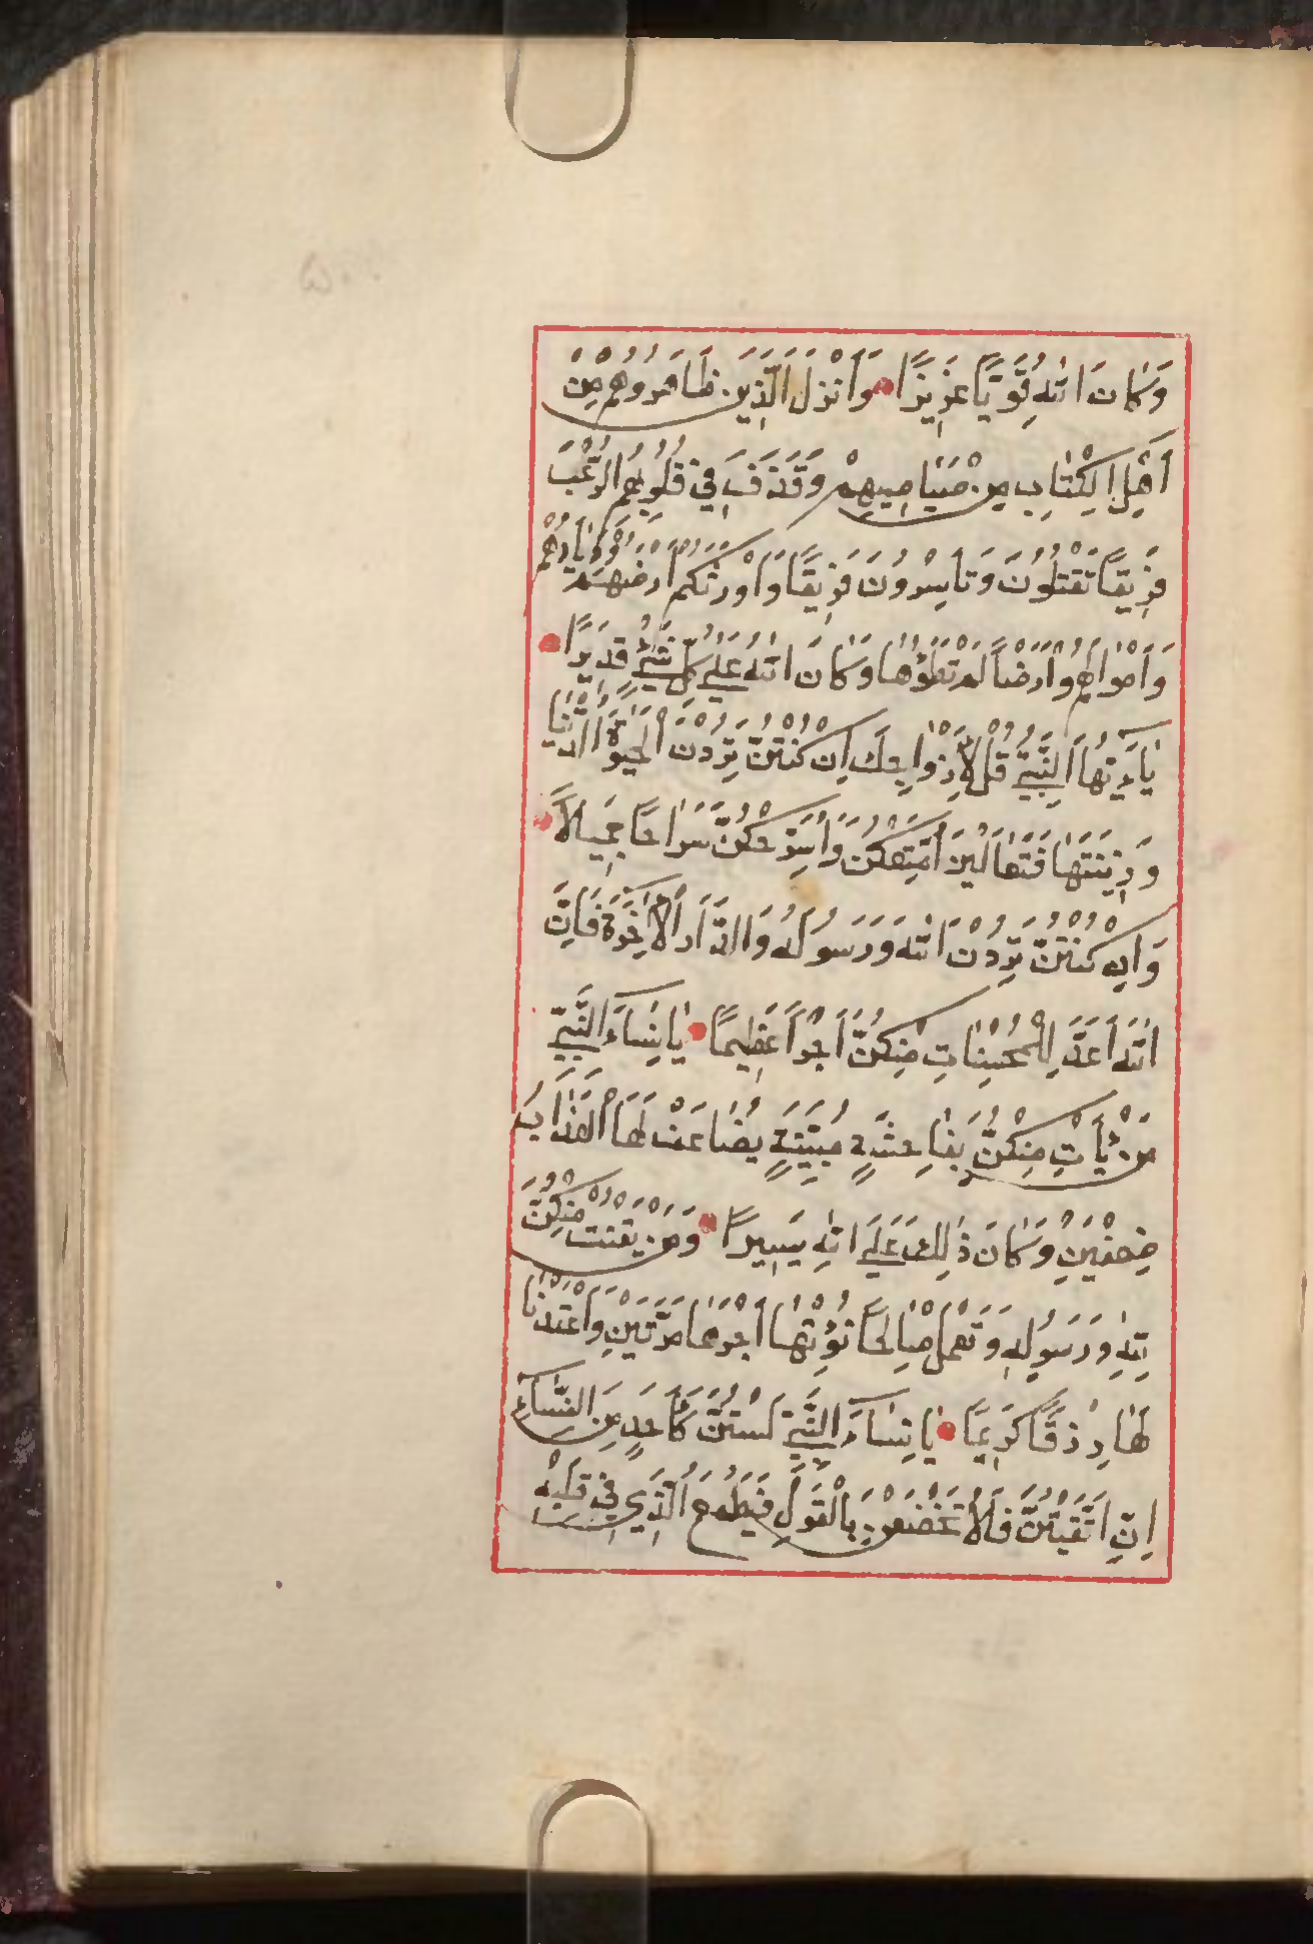 وَكَانَ اللهُ قَوِيًّا عَزِيزًا وَأَنْزَلَ الَّذِينَ ظَاهَرُوهُمْ مِنْ
أَهْلِ الْكِتَابِ مِنْ صَيَاصِيهِمْ وَقَذَفَ فِي قُلُوبِهِمُ الرُّعْبَ
فَرِيقًا تَقْتُلُونَ وَتَأْسِرُونَ فَرِيقًا وَأَوْرَثَكُمْ أَرْضَهُمْ وَدِيَارَهُمْ
وَأَمْوَالَهُمْ وَأَرْضًا لَمْ تَطَؤُهَا وَكَانَ اللهُ عَلَى كُلِّ شَيْءٍ قَدِيرًا
يَاأَيُّهَا النَّبِيُّ قُلْ لِأَزْوَاجِكَ إِنْ كُنْتُنَّ تُرِدْنَ الْحَيٰوةَ الدُّنْيَا
وَزِينَتَهَا فَتَعَالَيْنَ أُمَتِّعْكُنَّ وَأُسَرِّحْكُنَّ سَرَاحًا جَمِيلًا
وَإِنْ كُنْتُنَّ تُرِدْنَ اللهَ وَرَسُولَهُ وَالدَّارَ الْآخِرَةَ فَإِنَّ
اللهَ أَعَدَّ لِلْمُحْسِنَاتِ مِنْكُنَّ أَجْرًا عَظِيمًا يَانِسَاءَ النَّبِيِّ
مَنْ يَأْتِ مِنْكُنَّ بِفَاحِشَةٍ مُبَيِّنَةٍ يُضَاعَفْ لَهَا الْعَذَابُ
ضِعْفَيْنِ وَكَانَ ذٰلِكَ عَلَى اللهِ يَسِيرًا وَمَنْ يَقْنُتْ مِنْكُنَّ
لِلهِ وَرَسُولِهِ وَتَعْمَلْ صَالِحًا نُؤْتِهَا أَجْرَهَا مَرَّتَيْنِ وَأَعْتَدْنَا
لَهَا رِزْقًا كَرِيمًا يَانِسَاءَ النَّبِيِّ لَسْتُنَّ كَأَحَدٍ مِنَ النِّسَاءِ
إِنِ اتَّقَيْتُنَّ فَلَا تَخْضَعْنَ بِالْقَوْلِ فَيَطْمَعَ الَّذِي فِي قَلْبِهِ